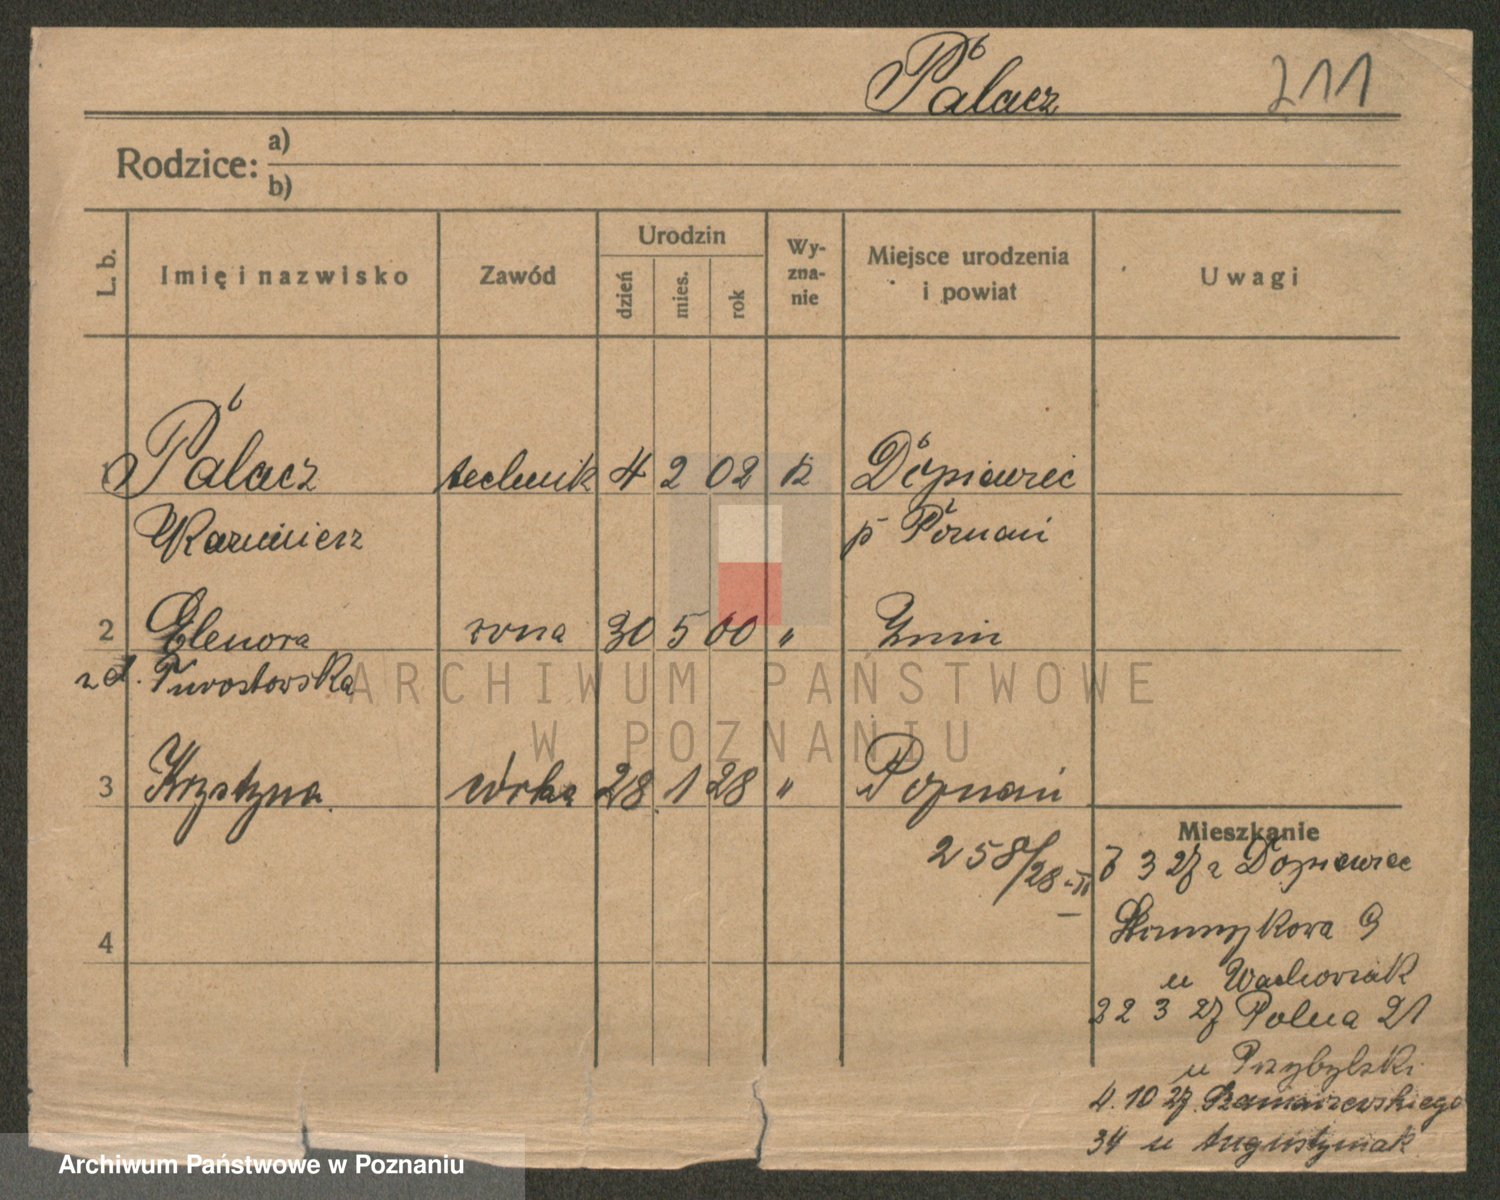 Palacz 211
Rodzice: a)
b)
L. b. Imię i nazwisko Zawód Urodzin dzień mies. rok Wy-zna-nie Miejsce urodzenia i powiat Uwagi
1 Palacz technik 4 2 02 R Dopiewiec
Kazimierz p Poznań
2 Elenora żona 30 5 00 " Żnin
z d. Turostowska
3 Krystyna córka 28 1 28 " Poznań
258/28
Mieszkanie
3 27 z Dopiewiec
9
u Wachowiak
22 3 27 Polna 21
u Przybylski
4
4.10 27
34 u Augustyniak
ARCHIWUM PAŃSTWOWE
W POZNANIU
Archiwum Państwowe w Poznaniu